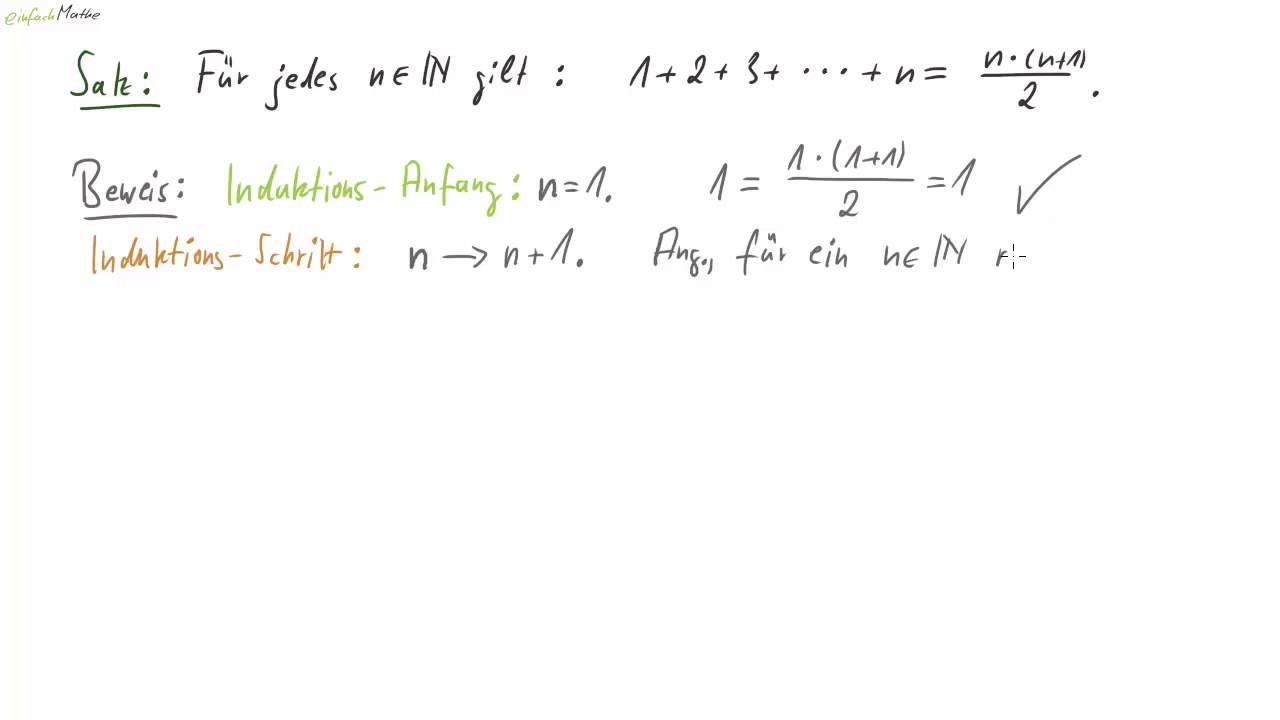 einfachMathe
Satz: Für jedes n∈ℕ gilt: 1+2+3+ ··· +n= n·(n+1)/2.
Beweis: Induktions-Anfang: n=1. 1= 1·(1+1)/2 =1 ✓
Induktions-Schritt: n → n+1. Ang., für ein n∈ℕ